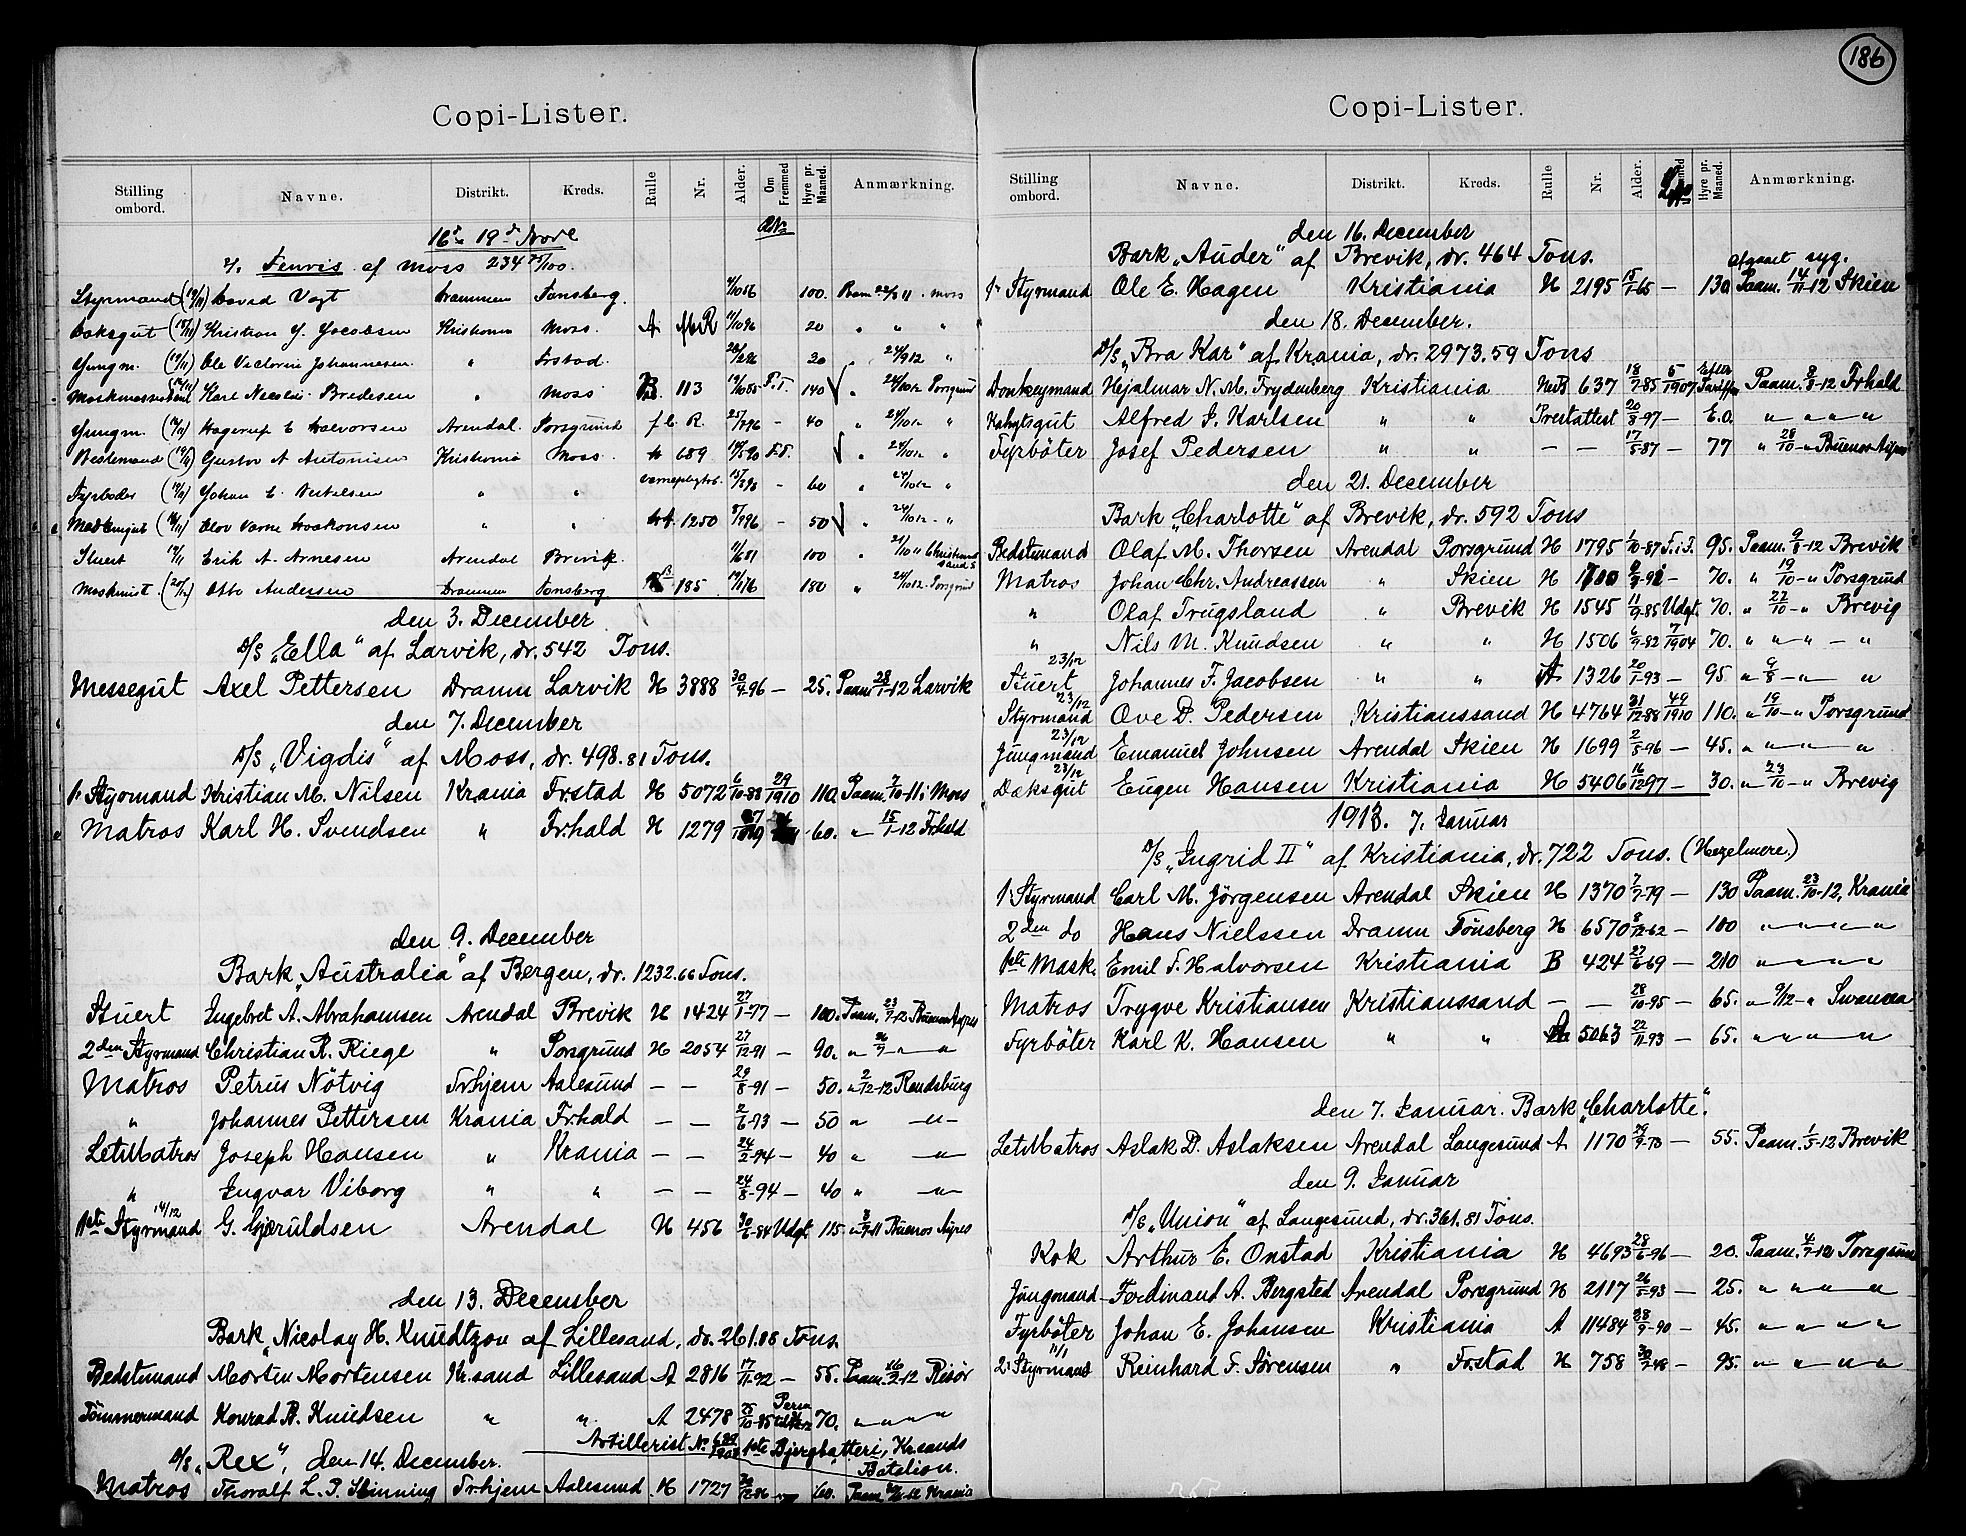 186
Copi-Lister.
Stilling ombord. Navne. Distrikt. Kreds. Rulle Nr. Alder. Om Fremmed Hyre pr. Maaned. Anmærkning.
16de 19de Nove
af Moss 234 75/100.
Styrmand Vogt Drammen Tønsberg. 100. moss
Dæksgut Kristian J. Jacobsen Kristiania Moss. A 20 " " "
Jungm. Ole Victorin Johannesen " Frstad. 20 " "
Karl Nicolai Bredesen " Moss B. 113 F.T. 140 " Porsgrund
Jungm. Hagerup E Halvorsen Arendal. Porsgrund f.l. R. - 40 " "
Bestemand Gustav A Antonisen Kristiania Moss. 689 F.T. " "
Fyrbøder Johan E. Bertelsen " " værnepligtsb. - 60 " "
Haakonsen " " 1250 - 50 " "
Stuert Erik A. Arnesen Arendal Brevik. 100 " Christianssand S
Maskinist Otto Andersen Drammen Tønsberg 185 180 " Porsgrund
den 3. December
D/S „Ella“ af Larvik, dr. 542 Tons.
Messegut Axel Pettersen Dramn Larvik H 3888 30/4-96 — 25. Paam 28/1-12 Larvik
den 7. December
D/S „Vigdis“ af Moss, dr. 498.81 Tons.
1. Styrmand Kristian M. Nilsen Krania Frstad H 5072 6/10-88 29/1910 110. Paam. 7/10-11 i Moss
Matros Karl H. Svendsen " Frhald H 1279 60. " 15/1-12 Frhald
den 9. December
Bark „Australia“ af Bergen, dr. 1232.66 Tons.
Stuert Ingebret A. Abrahamsen Arendal Brevik H 1424 27/1-77 — 100. Paam. 23/7-12 Buenos Ayres
2den Styrmand Christian R. Riege " Porsgrund H 2054 27/12-91 — 90. " 26/7 -"- -"-
Matros Petrus Nötvig Trhjem Aalesund — — 29/8-91 — 50. " 2/12-12 Rendsburg
" Johannes Pettersen Krania Frhald — — 2/6-93 — 50 " -"-
LetMatros Joseph Hansen " Krania — — 24/2-94 — 40 " -"-
" Ingvar Viborg " " — — 24/8-94 — 40 " -"-
14/12
1ste Styrmand G. Gjæruldsen Arendal H 456 30/6-84 Udgt. 115. " 3/7-11 Buenos Ayres
den 13. December
Bark „Nicolay H. Knudtzon af Lillesand, dr. 261.08 Tons.
Bedstemand Morten Mortensen Kr.sand Lillesand A 2816 17/11-92 — 55. Paam. 16/2-12 Risör
Tömmermand Konrad B. Knudsen " " A 2478 25/10-85 70. " " " "
Artillerist No 1ste Bjergbatteri, Kr.sands Batalion.
D/S „Rex“, den 14. December.
Matros Thoralf L. P. Skinning Trhjem Aalesund H 1727 60. Krania
Copi-Lister.
Stilling ombord. Navne. Distrikt. Kreds. Rulle Nr. Alder. Hyre pr. Maaned. Anmærkning.
den 16. December
Bark „Auder“ af Brevik, dr. 464 Tons.
afgaaet syg.
1. Styrmand Ole E. Hagen Kristiania H 2195 15/1-65 — 130 Paam. 14/11-12 Skien
den 18. December.
D/S „Bra Kar“ af Krania, dr. 2973.59 Tons
Donkeymand Hjalmar N. M. Frydenberg Kristiania 637 18/7-85 5/1907 Efter Tariffen Paam. 8/8-12 Frhald
Kahytsgut Alfred J. Karlsen " " Prestattest 20/8-97 — E.O. " " " "
Fyrböter Josef Pedersen " " — — 17/5-87 — 77 " 28/10 -" Buenos Ayres
den 21. December
Bark „Charlotte“ af Brevik, dr. 592 Tons
Bedstemand Olaf M. Thorsen Arendal Porsgrund H 1795 1/10-87 F.i.F. 95. Paam. 9/8-12 Brevik
Matros Johan Chr. Andreassen " Skien H — 70. " 19/10 -" Porsgrund
" Olaf Trugsland " Brevik H 1545 11/9-85 Udgt. 70. " 22/10 -" Brevig
" Nils M. Knudsen " " H 1506 6/9-82 7/1904 70. " " -"- - "
23/12
Stuert Johannes F. Jacobsen " " A 1326 20/1-93 — 95 " 9/8 -"- "
23/12
Styrmand Ove D. Pedersen Kristianssand H 4764 31/12-88 49/1910 110. " 19/10 -" Porsgrund
23/12
Jungmand Emanuel Johnsen Arendal Skien H 1699 2/5-96 — 45. " -"- "
23/12
Dæksgut Eugen Hansen Kristiania H 5406 16/12-97 — 30. " 23/10 -" Brevig
1913. 7. Januar
D/S „Ingrid II“ af Kristiania, dr. 722 Tons. (Hazelmere.)
1. Styrmand Carl M. Jörgensen Arendal Skien H 1370 7/7-79 — 130 Paam. 23/10-12, Krania
2den do Hans Nielssen Dramn Tönsberg H 6570 8/12-62 — 100 " " " "
1ste Mask. Emil F. Halvorsen Kristiania B 424 27/6-69 — 210 " " " "
Matros Trygve Kristiansen Kristianssand — — 28/10-95 — 65. " 9/12 -" Swansea
Fyrböter Karl K. Hansen " " A 5063 22/11-93 — 65. " " " "
den 7. Januar. Bark „Charlotte“.
LetMatros Aslak D. Aslaksen Arendal Langesund A 1170 — 55. Paam. 1/5-12 Brevik
den 9. Januar
D/S „Union“ af Langesund, dr. 361.81 Tons.
Kok Arthur E. Onstad Kristiania H 4693 28/6-96 — 20. Paam. 4/7-12 Porsgrund
Jungmand Ferdinand A. Bergsted Arendal Porsgrund H 2117 26/5-93 — 25. " " " "
Fyrböter Johan E. Johansen Kristiania A 11484 28/9-90 — 45. " " " "
11/1
2. Styrmand Reinhard F. Sörensen " Frstad H 758 — 95. " " " "